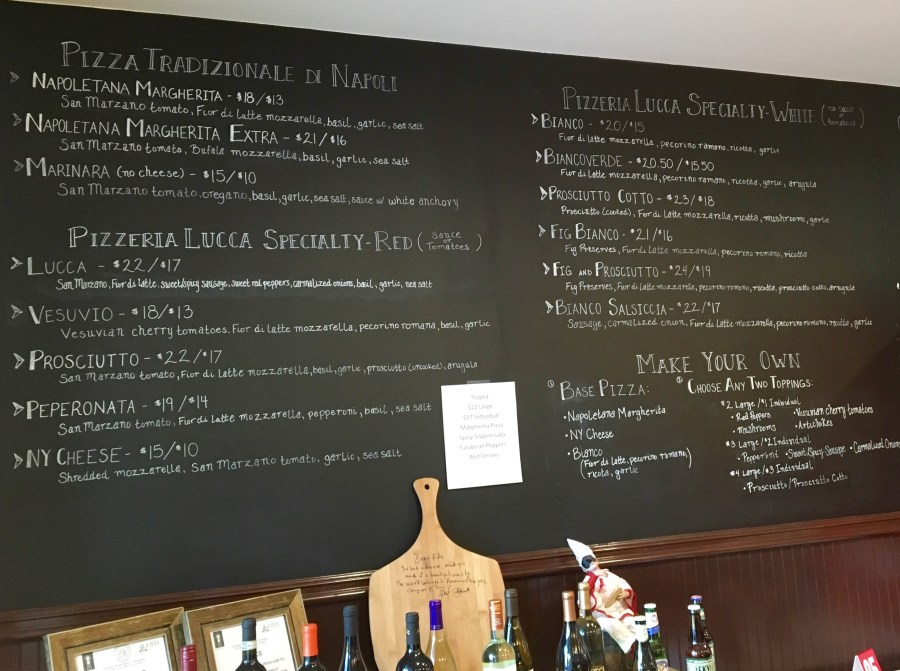 PIZZA TRADIZIONALE DI NAPOLI
NAPOLETANA MARGHERITA - $18/$13
San Marzano tomato, Fior di latte mozzarella, basil, garlic, sea salt
NAPOLETANA MARGHERITA EXTRA - $21/$16
San Marzano tomato, Bufala mozzarella, basil, garlic, sea salt
MARINARA (no cheese) - $15/$10
San Marzano tomato, oregano, basil, garlic, sea salt, sauce w/ white anchovy
PIZZERIA LUCCA SPECIALTY-RED (Sauce or Tomatoes)
LUCCA - $22/$17
San Marzano, Fior di latte, sweet/spicy sausage, sweet red peppers, carmalized onions, basil, garlic, sea salt
VESUVIO - $18/$13
Vesuvian cherry tomatoes, Fior di latte mozzarella, pecorino romana, basil, garlic
PROSCIUTTO - $22/$17
San Marzano tomato, Fior di latte mozzarella, basil, garlic, prosciutto (uncooked), arugula
PEPERONATA - $19/$14
San Marzano tomato, Fior di latte mozzarella, pepperoni, basil, sea salt
NY CHEESE - $15/$10
Shredded mozzarella, San Marzano tomato, garlic, sea salt
PIZZERIA LUCCA SPECIALTY-WHITE (no sauce or tomatoes)
BIANCO - $20/$15
Fior di latte mozzarella, pecorino romano, ricotta, garlic
BIANCOVERDE - $20.50/$15.50
Fior di latte mozzarella, pecorino romano, ricotta, garlic, arugula
PROSCIUTTO COTTO - $23/$18
Prosciutto (cooked), Fior di latte mozzarella, ricotta, mushrooms, garlic
FIG BIANCO - $21/$16
Fig Preserves, Fior di latte mozzarella, pecorino romano, ricotta
FIG AND PROSCIUTTO - $24/$19
Fig Preserves, Fior di latte mozzarella, pecorino romano, ricotta, prosciutto cotto, arugula
BIANCO SALSICCIA - $22/$17
Sausage, carmalized onion, Fior di latte mozzarella, pecorino romano, ricotta, garlic
MAKE YOUR OWN
① BASE PIZZA:
• Napoletana Margherita
• NY Cheese
• Bianco
(Fior di latte, pecorino romano,)
(ricota, garlic)
② CHOOSE ANY TWO TOPPINGS:
$2 Large/$1 Individual
• Red Peppers • Vesuvian cherry tomatoes
• Mushrooms • Artichokes
$3 Large/$2 Individual
• Pepperoni • Sweet/Spicy Sausage • Carmalized Onions
$4 Large/$3 Individual
• Prosciutto/Prosciutto Cotto
Tropea
$22 Large
$17 Individual
Margherita Pizza
Spicy Soppressata
Calabrian Peppers
Red Onions